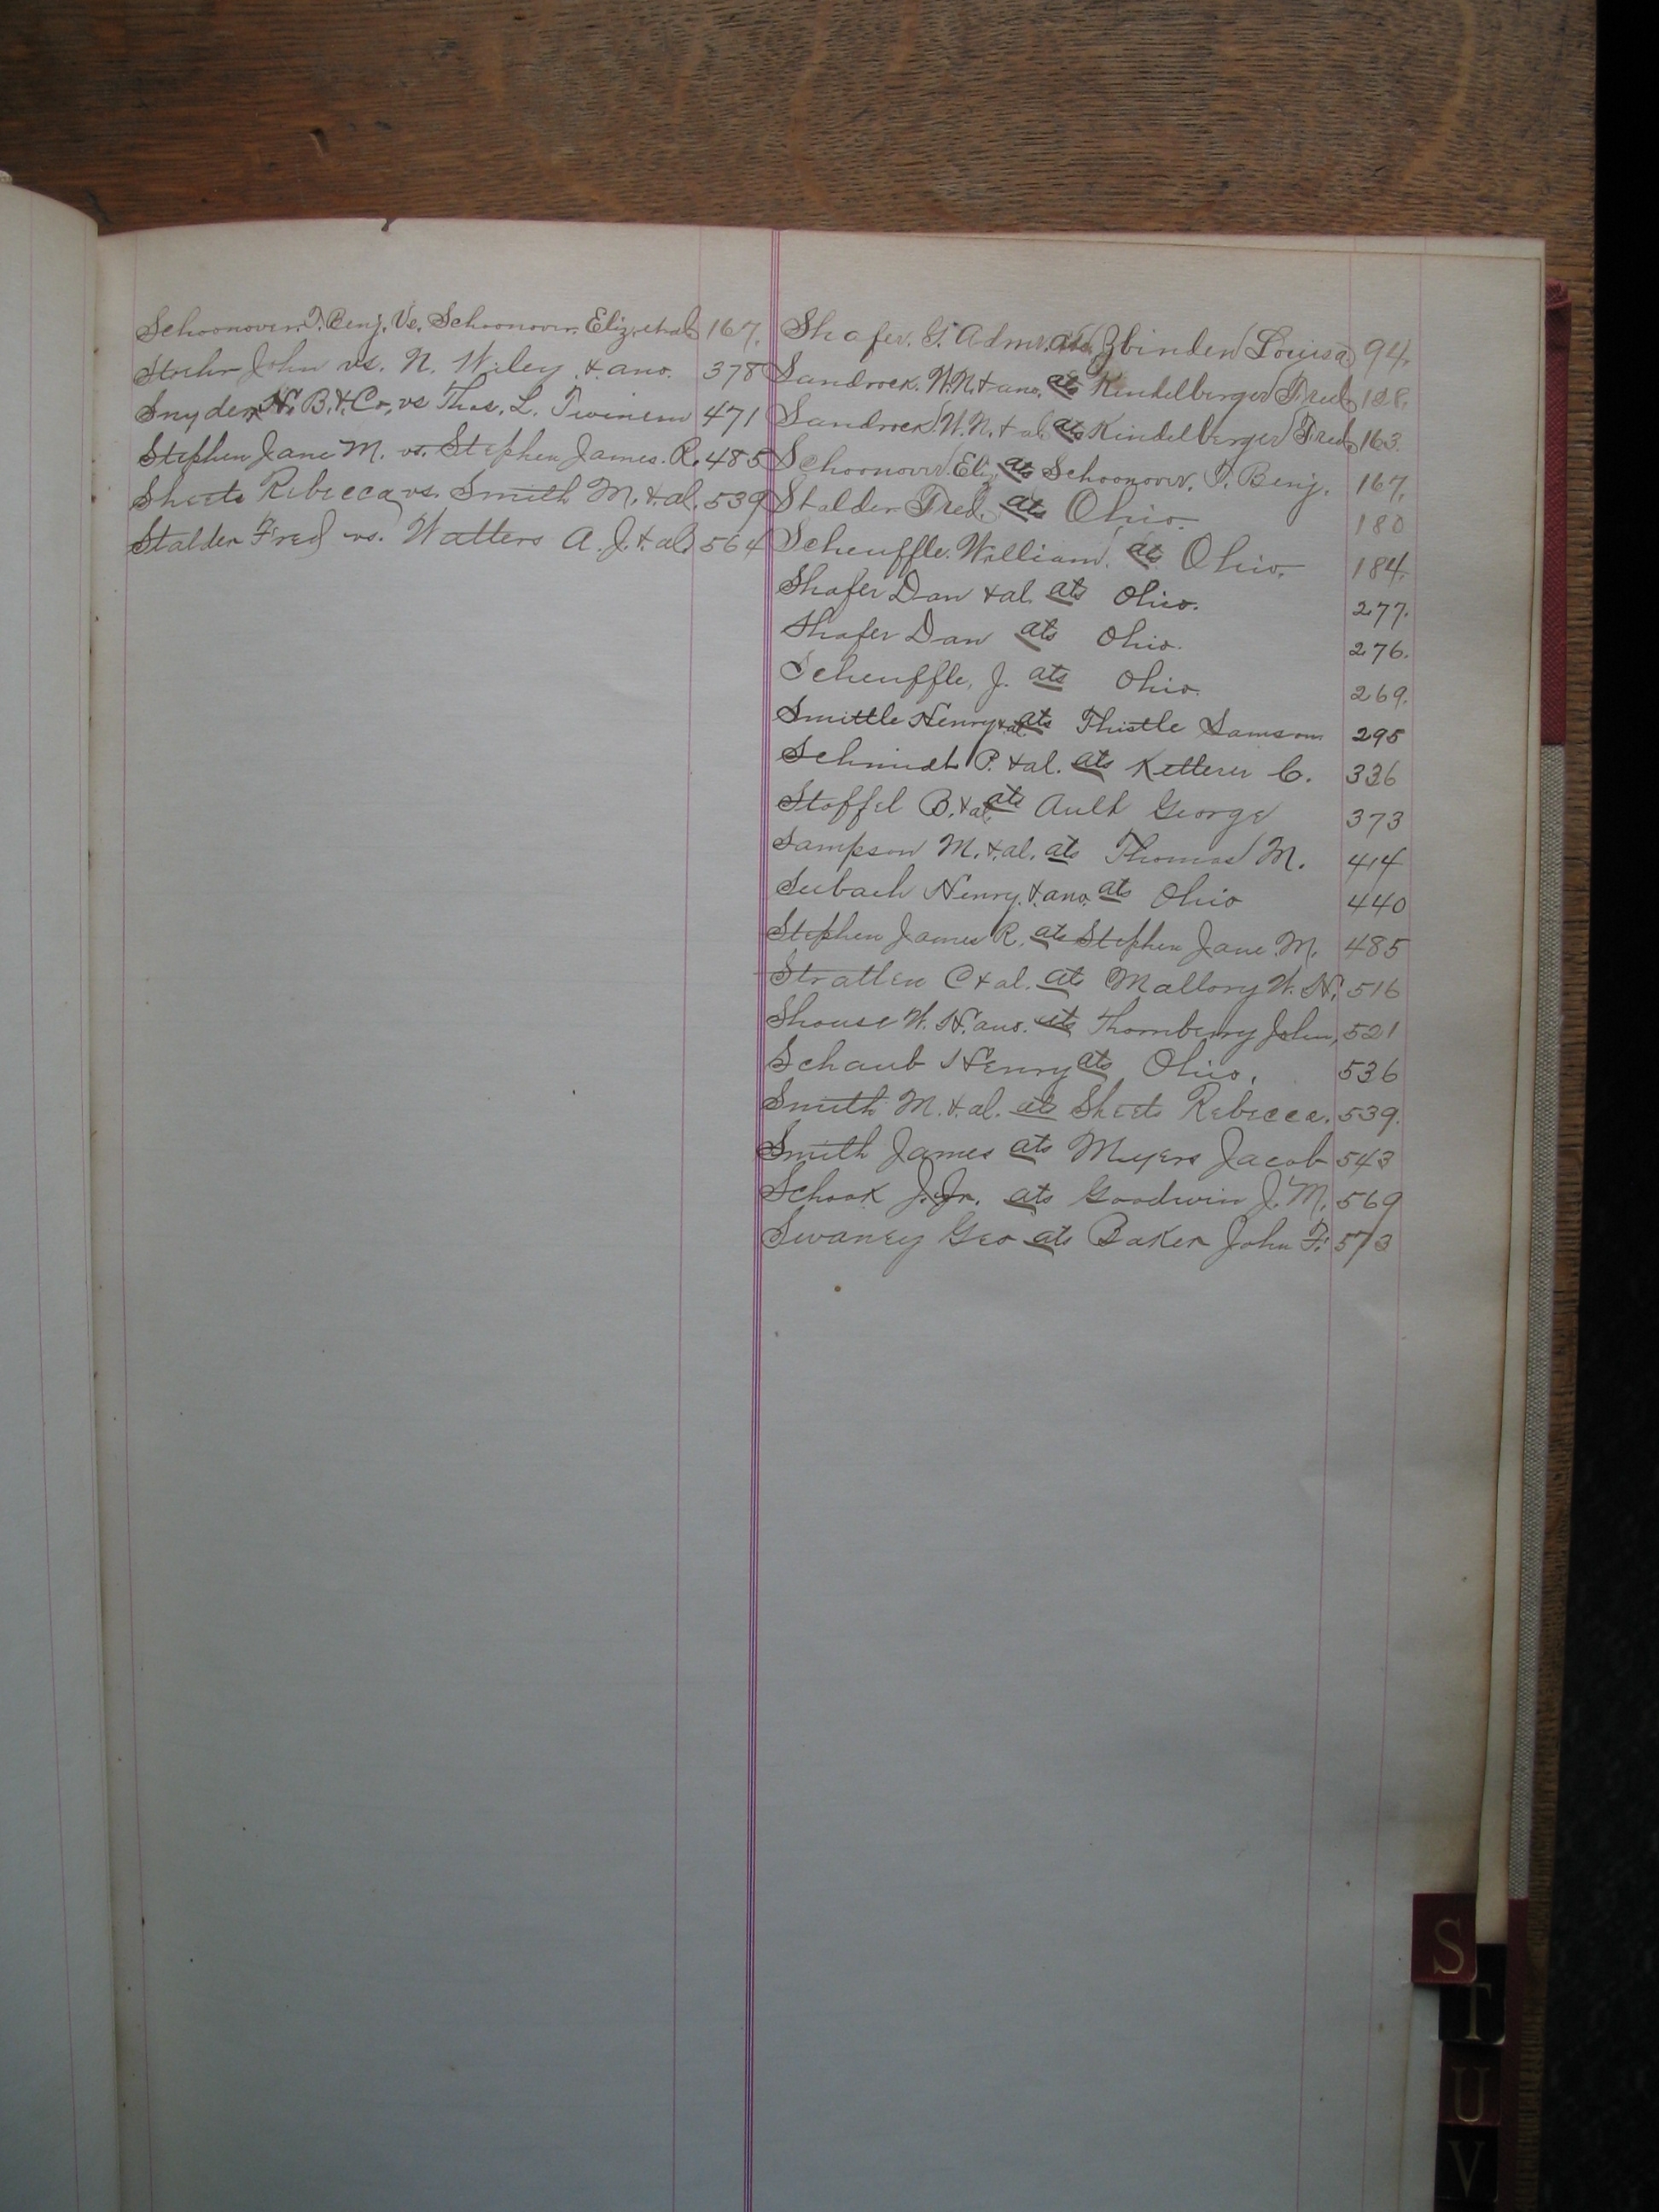 Schoonover. T. Benj. Vs. Schoonover. Eliz. et al 167.
Stoehr John vs. N. Wiley & ano. 378
Snyder, N. B. & Co, vs Thos. L. Twinem 471
Stephen Jane M. vs. Stephen James. R. 485
Sheets Rebecca vs. Smith M. & al. 539
Stalder Fred vs. Watters A. J. & al. 564
Shafer. G. Admr. ats Zbinden Louisa 94.
Sandrock. W. N. & ano. ats Kindelberger Fred 128.
Sandrock W. N. & al ats Kindelberger Fred 163.
Schoonover Eliz ats Schoonover. T. Benj. 167.
Stalder Fred. ats Ohio. 180
Scheuffle. William. ats Ohio. 184.
Shafer Dan & al. ats Ohio. 277.
Shafer Dan ats Ohio. 276.
Scheuffle, J. ats Ohio. 269.
Smittle Henry & al ats Thistle Samson 295
Schmidt P. & al. ats Ketterer C. 336
Stoffel B. & al. ats Ault George 373
Sampson M. & al. ats Thomas M. 414
Seebach Henry. & ano. ats Ohio 440
Stephen James R. ats Stephen Jane. M. 485
Stratten C & al. ats Mallory W. H. 516
Shouse W. H. ano. ats Thornberry John, 521
Schaub Henry ats Ohio. 536
Smith M. & al. ats Sheets Rebecca. 539.
Smith James ats Meyers Jacob 543
Schook J. Jr. ats Goodwin J. M. 569
Swaney Geo ats Baker John F. 573
S
T
U
V